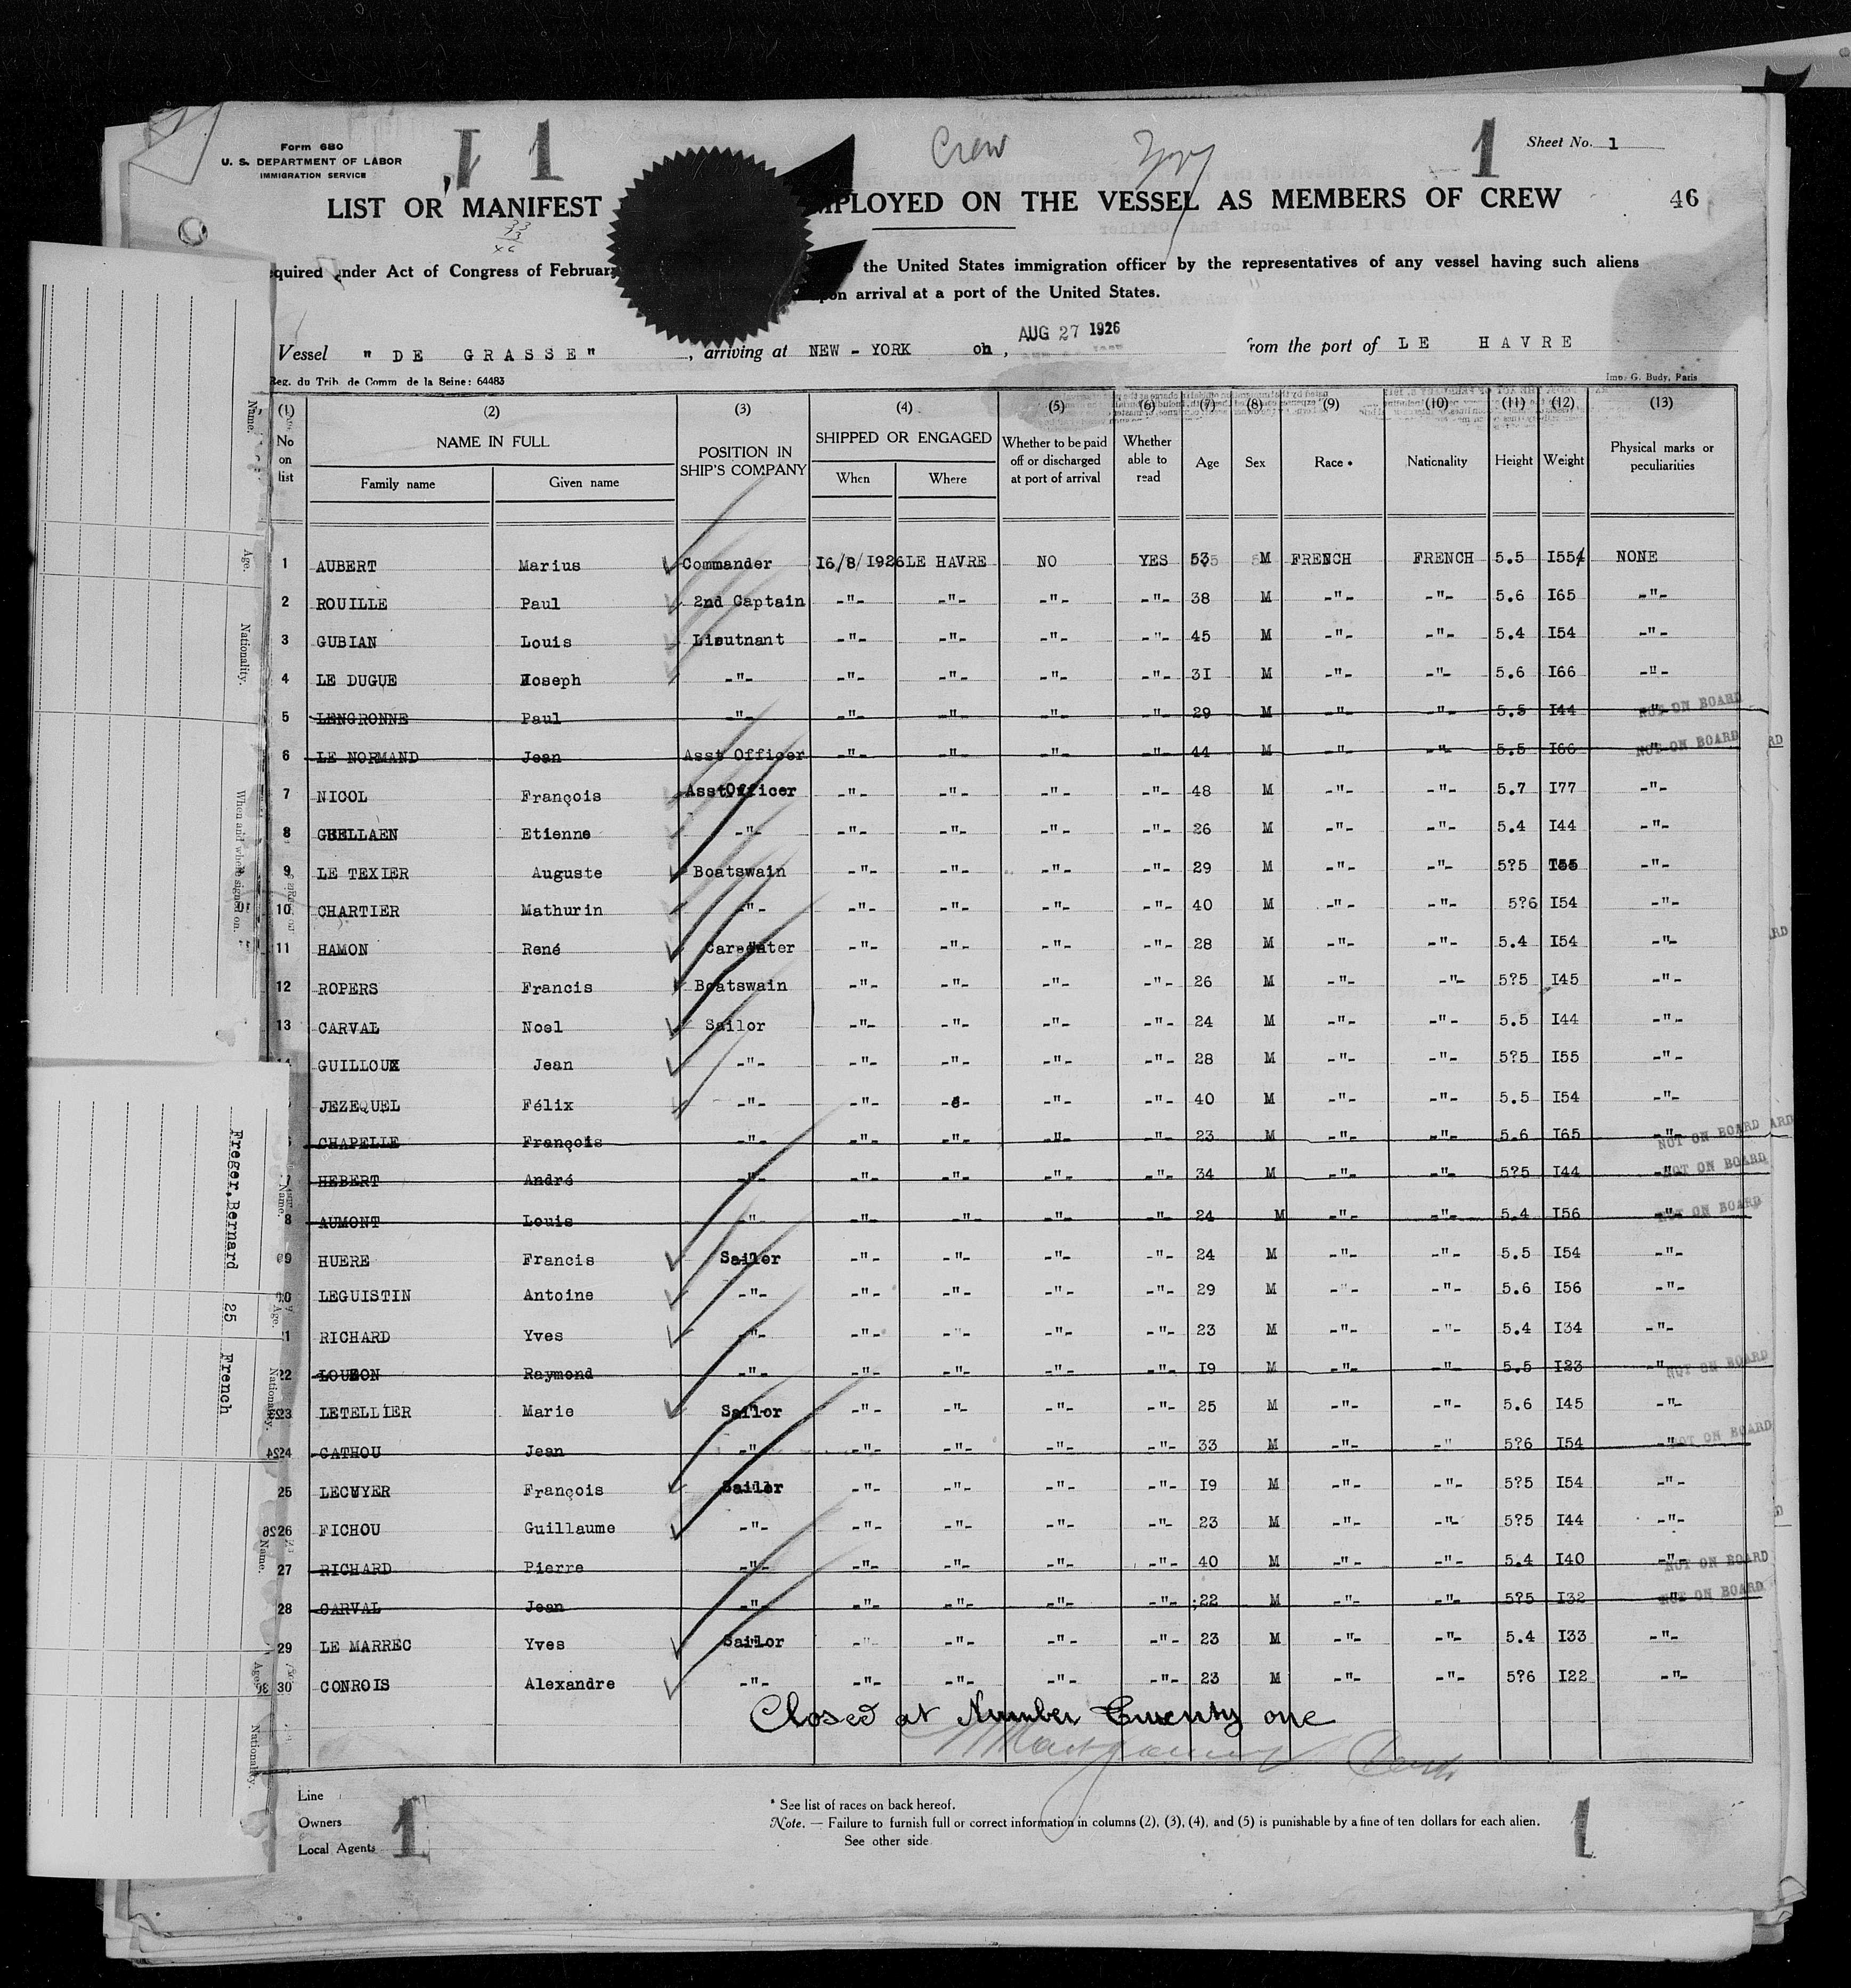 Form 680
U. S. DEPARTMENT OF LABOR
IMMIGRATION SERVICE
1 1
Crew
1
Sheet No. 1
LIST OR MANIFEST EMPLOYED ON THE VESSEL AS MEMBERS OF CREW
46
33
13
46
equired under Act of Congress of Februar the United States immigration officer by the representatives of any vessel having such aliens
upon arrival at a port of the United States.
Vessel "DE GRASSE", arriving at NEW-YORK on, AUG 27 1926 from the port of LE HAVRE
Reg. du Trib. de Comm. de la Seine: 64483
Imp. G. Budy, Paris
(1) (2) (3) (4) (5) (6) (7) (8) (9) (10) (11) (12) (13)
No on list NAME IN FULL Family name Given name POSITION IN SHIP'S COMPANY SHIPPED OR ENGAGED When Where Whether to be paid off or discharged at port of arrival Whether able to read Age Sex Race * Nationality Height Weight Physical marks or peculiarities
1 AUBERT Marius Commander 16/8/1926 LE HAVRE NO YES 53 M FRENCH FRENCH 5.5 I554 NONE
2 ROUILLE Paul 2nd Captain -"- -"- -"- -"- 38 M -"- -"- 5.6 I65 -"-
3 GUBIAN Louis Lieutnant -"- -"- -"- -"- 45 M -"- -"- 5.4 I54 -"-
4 LE DUGUE Joseph -"- -"- -"- -"- -"- 3I M -"- -"- 5.6 I66 -"-
5 LENGRONNE Paul -"- -"- -"- -"- -"- 29 M -"- -"- 5.5 I44 -"- NOT ON BOARD
6 LE NORMAND Jean Asst Officer -"- -"- -"- -"- 44 M -"- -"- 5.5 I66 -"- NOT ON BOARD
7 NICOL François Asst Officer -"- -"- -"- -"- 48 M -"- -"- 5.7 I77 -"-
8 GUELLAEN Etienne -"- -"- -"- -"- -"- 26 M -"- -"- 5.4 I44 -"-
9 LE TEXIER Auguste Boatswain -"- -"- -"- -"- 29 M -"- -"- 5?5 I55 -"-
10 CHARTIER Mathurin -"- -"- -"- -"- -"- 40 M -"- -"- 5?6 I54 -"-
11 HAMON René Carpenter -"- -"- -"- -"- 28 M -"- -"- 5.4 I54 -"-
12 ROPERS Francis Boatswain -"- -"- -"- -"- 26 M -"- -"- 5?5 I45 -"-
13 CARVAL Noel Sailor -"- -"- -"- -"- 24 M -"- -"- 5.5 I44 -"-
GUILLOUX Jean -"- -"- -"- -"- -"- 28 M -"- -"- 5?5 I55 -"-
JEZEQUEL Félix -"- -"- -"- -"- -"- 40 M -"- -"- 5.5 I54 -"-
CHAPELLE François -"- -"- -"- -"- -"- 23 M -"- -"- 5.6 I65 -"- NOT ON BOARD
7 HEBERT André -"- -"- -"- -"- -"- 34 M -"- -"- 5?5 I44 -"- NOT ON BOARD
8 AUMONT Louis -"- -"- -"- -"- -"- 24 M -"- -"- 5.4 I56 -"- NOT ON BOARD
9 HUERE Francis Sailor -"- -"- -"- -"- 24 M -"- -"- 5.5 I54 -"-
20 LEGUISTIN Antoine -"- -"- -"- -"- -"- 29 M -"- -"- 5.6 I56 -"-
21 RICHARD Yves -"- -"- -"- -"- -"- 23 M -"- -"- 5.4 I34 -"-
22 LOUZON Raymond -"- -"- -"- -"- -"- I9 M -"- -"- 5.5 I23 -"- NOT ON BOARD
23 LETELLIER Marie Sailor -"- -"- -"- -"- 25 M -"- -"- 5.6 I45 -"-
24 CATHOU Jean -"- -"- -"- -"- -"- 33 M -"- -" 5?6 I54 -"- NOT ON BOARD
25 LECUYER François Sailor -"- -"- -"- -"- I9 M -"- -"- 5?5 I54 -"-
26 FICHOU Guillaume -"- -"- -"- -"- -"- 23 M -"- -"- 5?5 I44 -"-
27 RICHARD Pierre -"- -"- -"- -"- -"- 40 M -"- -"- 5.4 I40 -"- NOT ON BOARD
28 CARVAL Jean -"- -"- -"- -"- -"- 22 M -"- -"- 5?5 I32 -"- NOT ON BOARD
29 LE MARREC Yves Sailor -"- -"- -"- -"- 23 M -"- -"- 5.4 I33 -"-
30 CONROIS Alexandre -"- -"- -"- -"- -"- 23 M -"- -"- 5?6 I22 -"-
Closed at Number Twenty one
Line
Owners
Local Agents
1
* See list of races on back hereof.
Note. — Failure to furnish full or correct information in columns (2), (3), (4), and (5) is punishable by a fine of ten dollars for each alien.
See other side
1
Name. Age. Nationality. When and where signed on.
Freger, Bernard 25 French
Name. Age. Nationality.
Name. Age. Nationality.